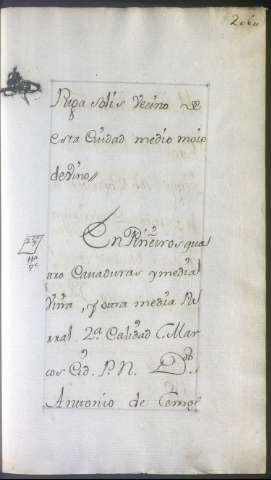 Pepa solis Vecino de
esta Ciudad medio moio
de vino
En Piñeiros qua
tro Cavaduras y media
Viña, y otra media Pe
rral 2ª Calidad C. Mar
cos Cid. P. N. D.
Antonio de Temes